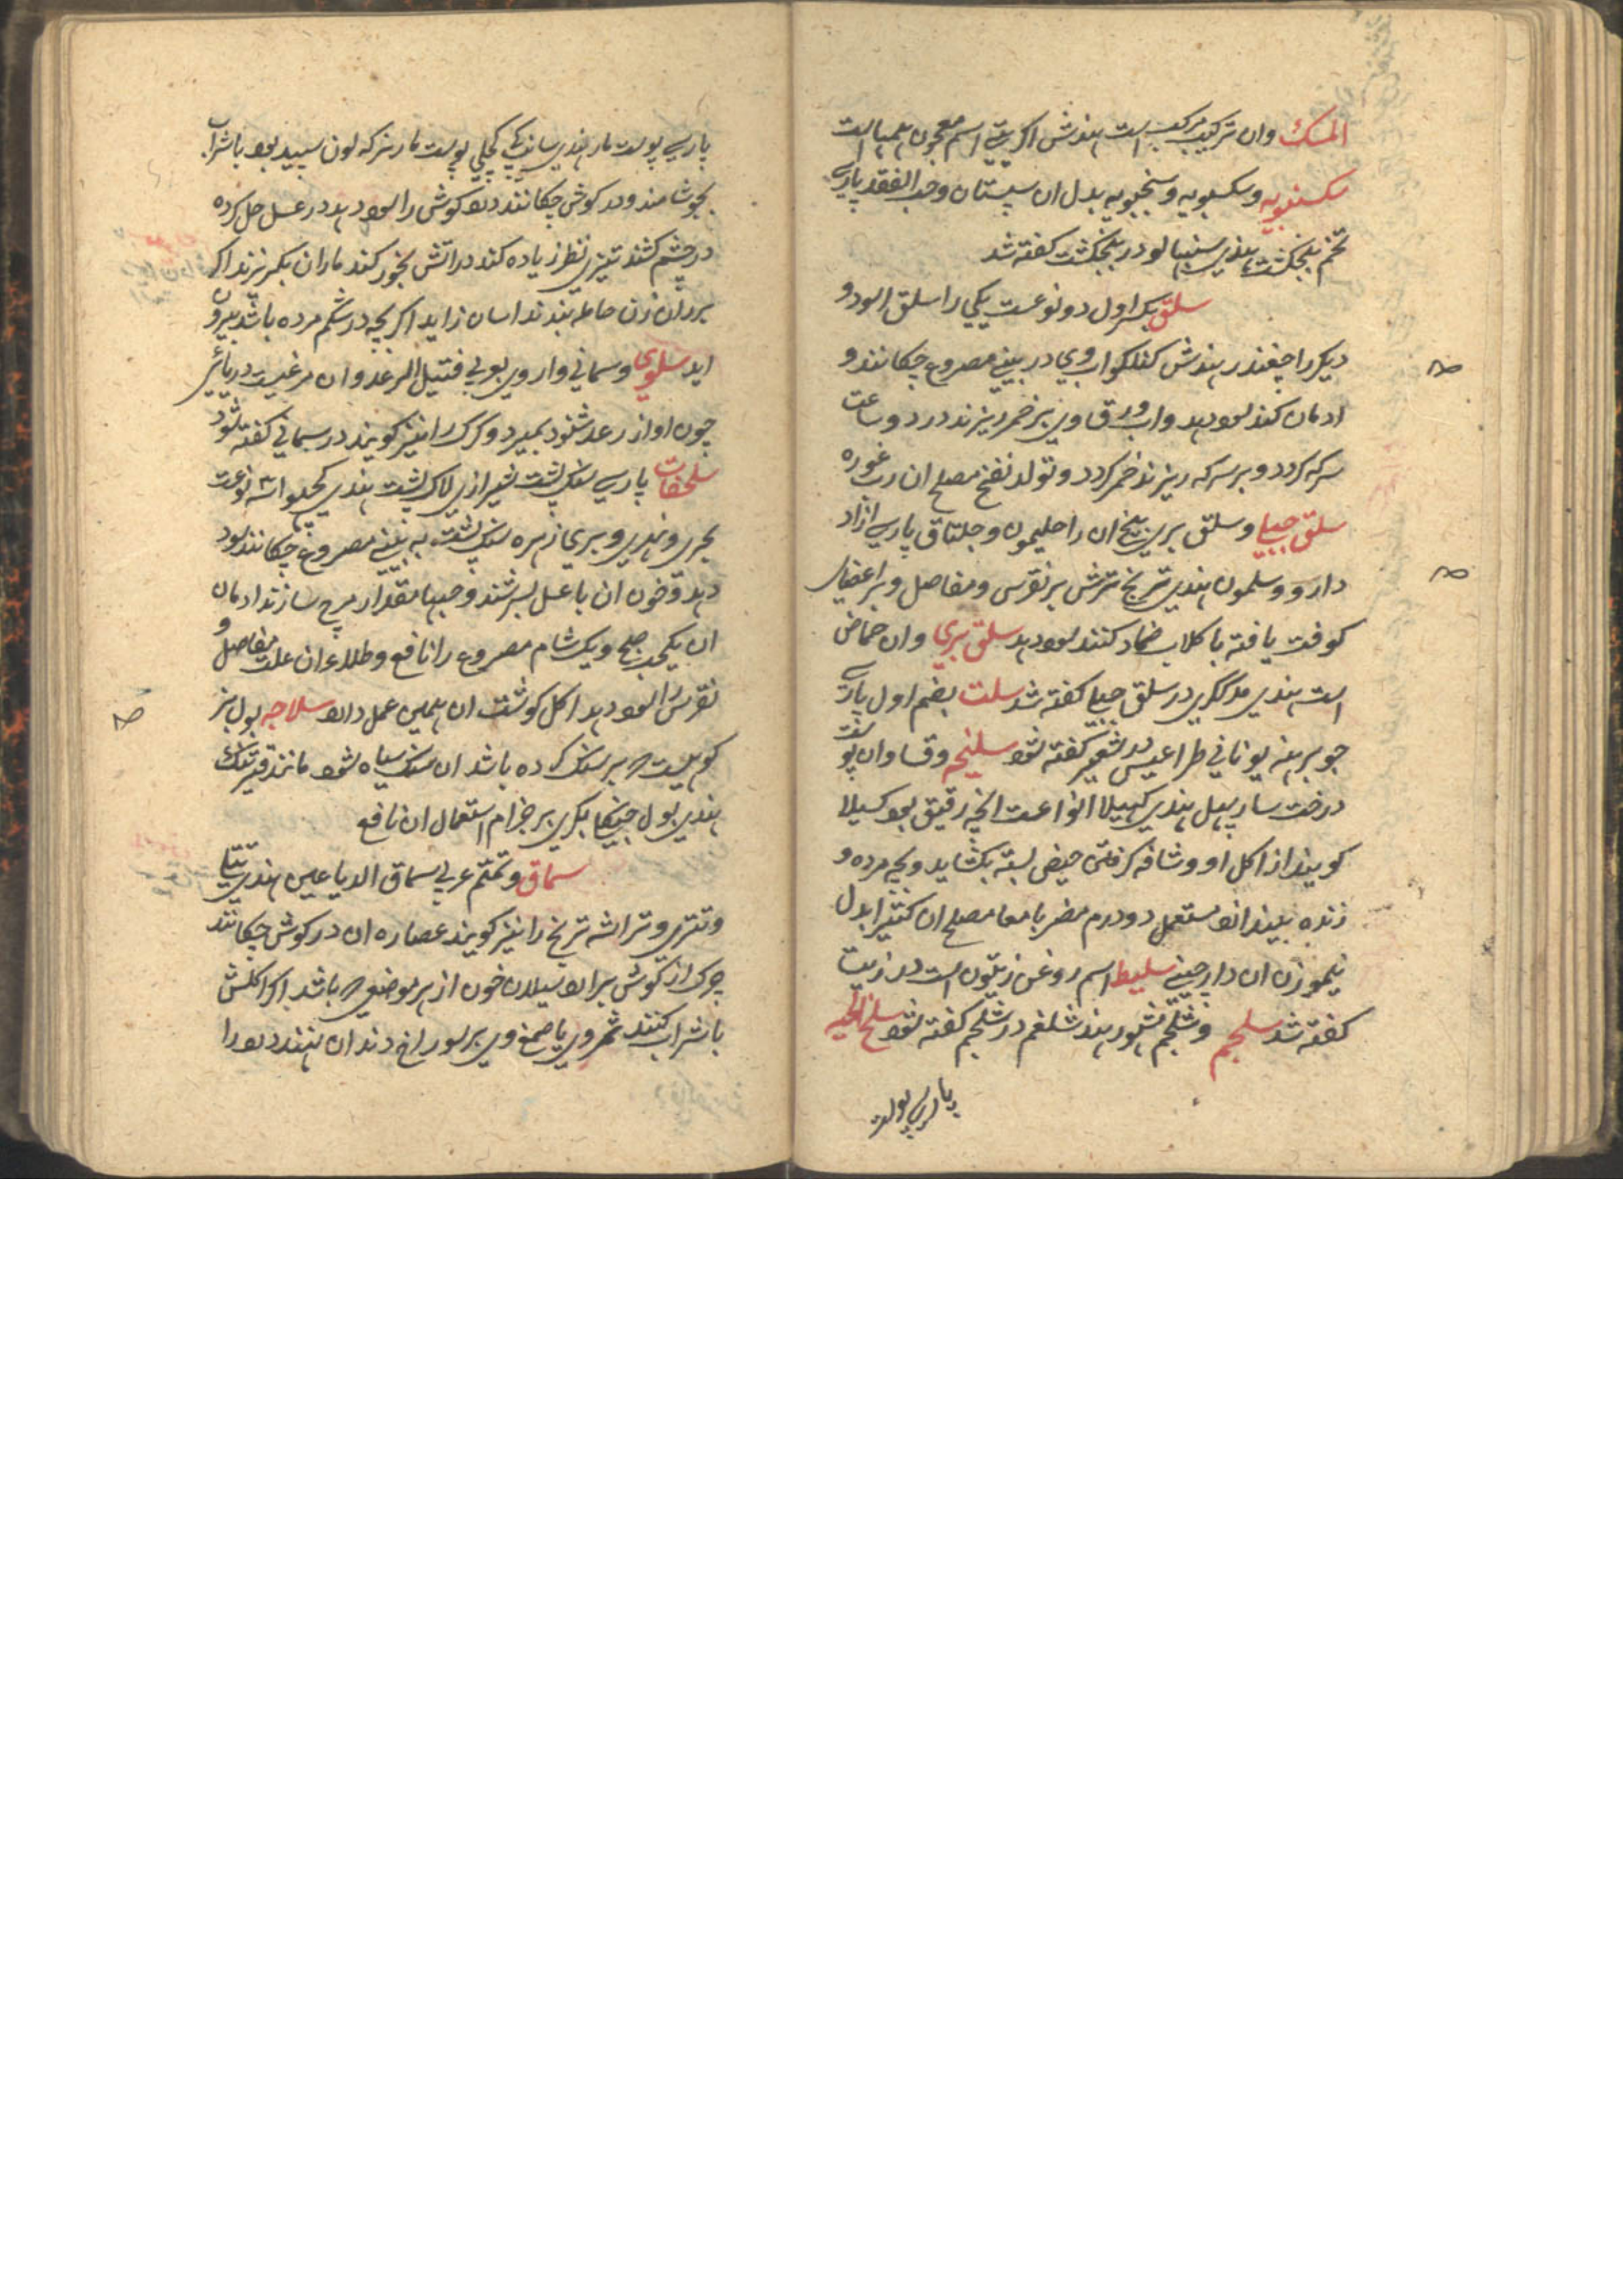 المسک وان ترکیب مرکب است هندش اکریتی اسم معجون همیا است
سکسنبویه وسکسبویه وسنجبویه بدل ان سپستان وحب الفقد پارسی
تخم پنجنکشت هندی سنبهالو در پنجنکشت کفته شد
سلق بکسر اول دو نوعست یکی را سلق اسود و
دیکر را چغندر هندش کنلکو اب وی در بینی مصروع چکانند و
ادمان کند سود دهد واب ورق وی بر خمر ریزند در دو ساعت
سرکه کردد و بر سرکه ریزند خمر کردد و تولد نفخ مصلح ان رب غوره
سلق جبلی وسلق بری بیخ ان را حلیمون وجلتاق پارسی ازاد
دارو وسلمون هندی تربخ ترش بر نقرس ومفاصل و بر اعضای
کوفت یافته با کلاب ضماد کنند سود دهد سلق بری وان حماض
است هندی در سلق جبلی کفته شد سلت بضم اول پارسی
جو برهنه یونانی طراغیس در شعیر کفته شود سلیخه وقسا وان پوست
درخت سار پیل هندی کهیلا انواعست انچه رقیق بود کسیلا
کویند از اکل او و شافه کرفتن حیض بسته بکشاید و بچه مرده و
زنده بیندازد مستعمل دو درم مضر بامعا مصلح ان کتیرا بدل
نیموزن ان دارچینی سلیط اسم روغن زیتون است در زیت
کفته شد سلجم وشلجم مشهور هند شلغم در شلجم کفته شود سلخ الحیه
پارسی پوست
پارسی پوست مار هندی سانپ کی کچلی پوست مار نر که لون سپید بود با شراب
بجوشانند و در کوش چکانند درد کوش را سود دهد در عسل حل کرده
در چشم کشند تیزی نظر زیاده کند در اتش بخور کنند ماران بکریزند اکر
بر ران زن حامله بندند اسان زاید اکر بچه در شکم مرده باشد بیرون
اید سلوی وسمانی واروی بعربی قتیل الرعد وان مرغیست دریائی
چون اواز رعد شنود بمیرد وکرک را نیز کویند در سمانی کفته شود
سلحفات پارسی سنک پشت شیرازی لاک پشت هندی کچهوا سه نوعست
بحری ونهری وبری زهره سنک پشت به بینی مصروع چکانند سود
دهد وخون ان با عسل بسرشند وحبها مقدار مرچ سازند ادمان
ان یکحب صبح ویک شام مصروع را نافع وطلاء ان علت مفاصل و
نقرس را سود دهد اکل کوشت ان همین عمل دارد سلاجه بول بز
کوهیست که بر سنک کرده باشد ان سنک سیاه شود مانند قیر تنک
هندی بول جنکلی بکری بر جذام استعمال ان نافع
سماق وتمتم عربی سماق الدباغین هندی تتلی
وتتری وتراشه تربخ را نیز کویند عصاره ان در کوش چکانند
چرک از کوش برارد سیلان خون از هر موضعی که باشد اکر اکلش
با شراب کنند ثمر وی یا صمغ وی بر سوراخ دندان نهند درد را